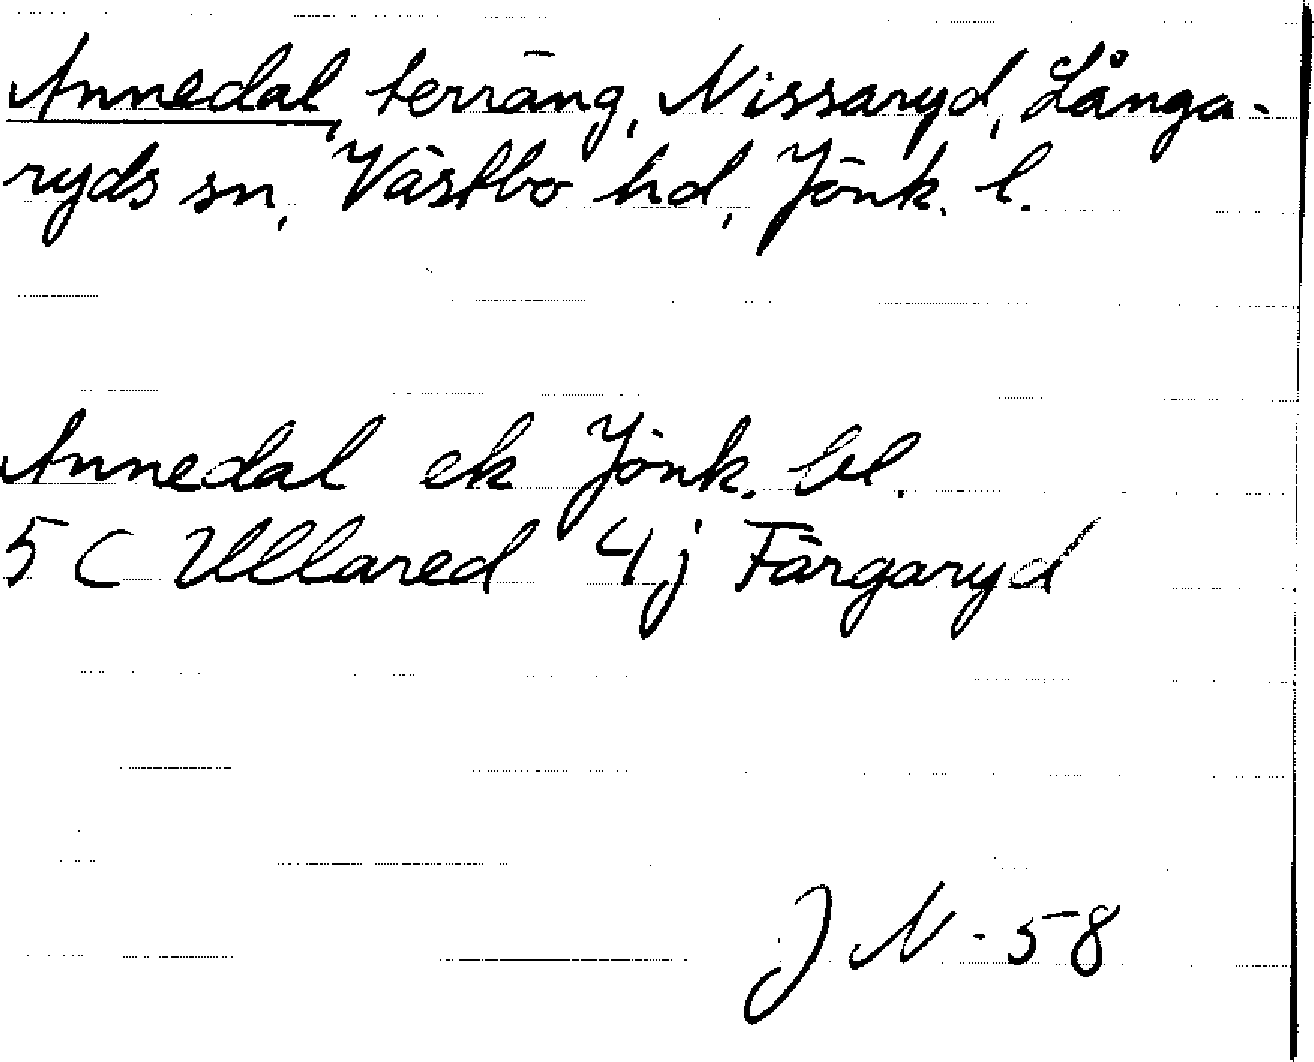 Annedal, terräng, Nissaryd, Långa-
ryds sn, Västbo hd, Jönk. l.
Annedal ek Jönk. bl.
5 C Ullared 4 j Färgaryd
J N - 58